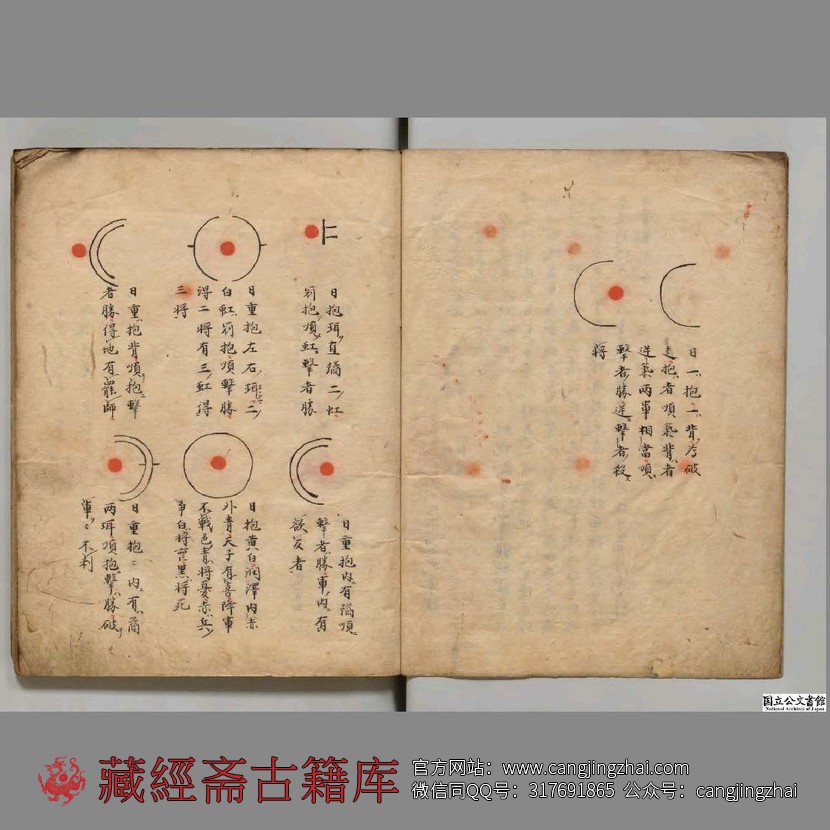 日一抱一背為破
走抱者順氣背者
逆氣兩軍相當順
擊者勝逆擊者殺
將
日抱珥直璚二虹
罰抱順虹擊者勝
日重抱左右珥二
白虹罰抱順擊勝
得二將有三虹得
三將
日重抱背順抱擊
者勝得地有罷師
日重抱内有璚順
擊者勝軍内有
欲反者
日抱黄白潤澤内赤
外青天子有喜降軍
不戰色青將憂赤兵
爭白將黑將死
日重抱内有璚
兩珥順抱擊勝破
軍不利
国立公文書館
National Archives of Japan
藏經斋古籍库
官方网站：www.cangjingzhai.com
微信同QQ号：317691865 公众号：cangjingzhai